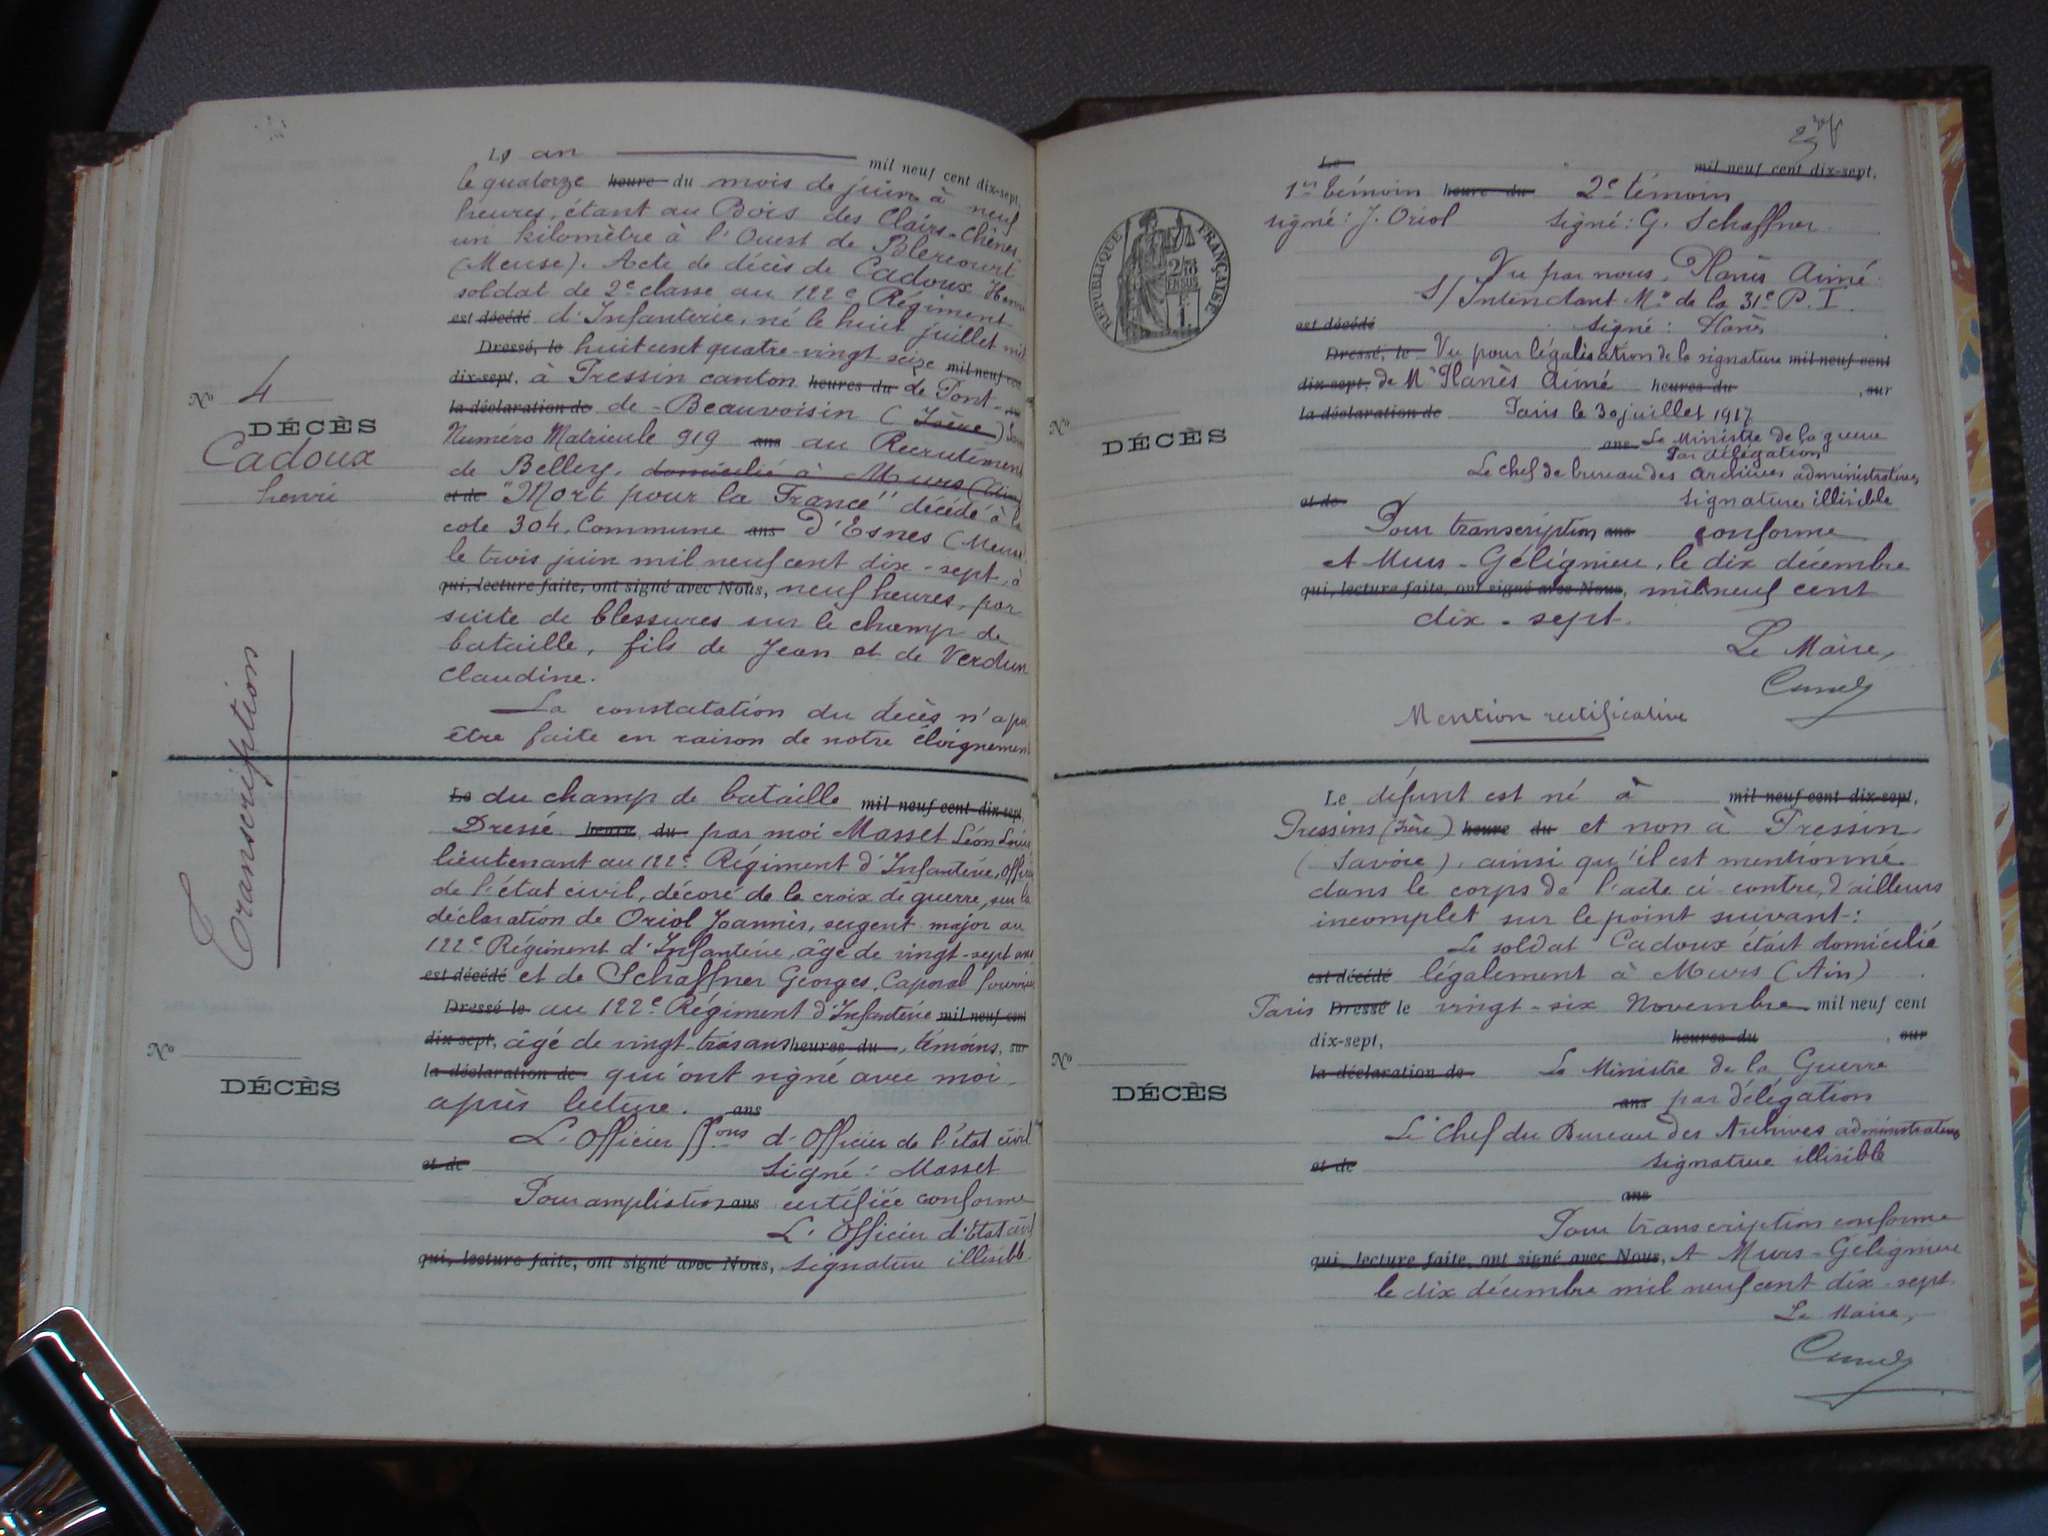 L'an mil neuf cent dix-sept,
le quatorze heure du mois de juin à neuf
heures, étant au Bois des Clairs-Chênes,
un kilomètre à l'Ouest de Blercourt
(Meuse). Acte de décès de Cadoux Henri
soldat de 2e classe au 122e Régiment
est décédé d'Infanterie, né le huit juillet mil
Dressé, le huit cent quatre-vingt seize mil neuf cent
dix-sept, à Pressin canton heures du de Pont-
la déclaration de de-Beauvoisin (Isère)
Numéro Matricule 919 ans au Recrutement
de Belley, domicilié à Murs (Ain)
et de "Mort pour la France" décédé à la
cote 304. Commune ans d'Esnes (Meuse)
le trois juin mil neuf cent dix-sept, à
qui, lecture faite, ont signé avec Nous, neuf heures, par
suite de blessures sur le champ de
bataille, fils de Jean et de Verdun
Claudine.
La constatation du décès n'a pu
être faite en raison de notre éloignement
No 4
DÉCÈS
Cadoux
henri
Transcription
Le du champ de bataille mil neuf cent dix-sept,
Dressé heure du par moi Masset Léon Louis
lieutenant au 122e Régiment d'Infanterie, Officier
de l'état civil, décoré de la croix de guerre, sur la
déclaration de Oriol Joannès, sergent major au
122e Régiment d'Infanterie, âgé de vingt-sept ans
est décédé et de Schaffner Georges, Caporal fourrier
Dressé le au 122e Régiment d'Infanterie mil neuf cent
dix-sept, âgé de vingt-trois ans heures du, témoins, sur
la déclaration de qui ont signé avec moi
après lecture. ans
L'Officier ff.ons d'Officier de l'état civil
et de Signé: Masset
Pour ampliation ans certifiée conforme
L'Officier d'Etat civil
qui, lecture faite, ont signé avec Nous, signature illisible
No
DÉCÈS
Le mil neuf cent dix-sept,
1er témoin heure du 2e témoin
signé: J. Oriol signé: G. Schaffner
Vu par nous, Planès Aimé
S/Intendant Mre de la 31e D.I.
est décédé signé: Planès
Dressé, le Vu pour légalisation de la signature mil neuf cent
dix-sept, de Mr Planès Aimé heures du, sur
la déclaration de Paris le 30 juillet 1917
ans Le Ministre de la guerre
Par délégation
Le chef de bureau des Archives administratives
et de signature illisible
Pour transcription ans conforme
A Murs-Gélignieu, le dix décembre
qui, lecture faite, ont signé avec Nous, mil neuf cent
dix-sept.
Le Maire,
RÉPUBLIQUE FRANÇAISE
No
DÉCÈS
Mention rectificative
Le défunt est né à mil neuf cent dix-sept,
Pressins (Isère) heure du et non à Pressin
(Savoie), ainsi qu'il est mentionné
dans le corps de l'acte ci-contre, d'ailleurs
incomplet sur le point suivant:
Le soldat Cadoux était domicilié
est décédé légalement à Murs (Ain)
Paris Dressé le vingt-six Novembre mil neuf cent
dix-sept, heures du, sur
la déclaration de Le Ministre de la Guerre
ans par délégation
Le Chef du Bureau des Archives administratives
et de signature illisible
ans
Pour transcription conforme
qui, lecture faite, ont signé avec Nous, A Murs-Gélignieu
le dix décembre mil neuf cent dix-sept.
Le Maire,
No
DÉCÈS